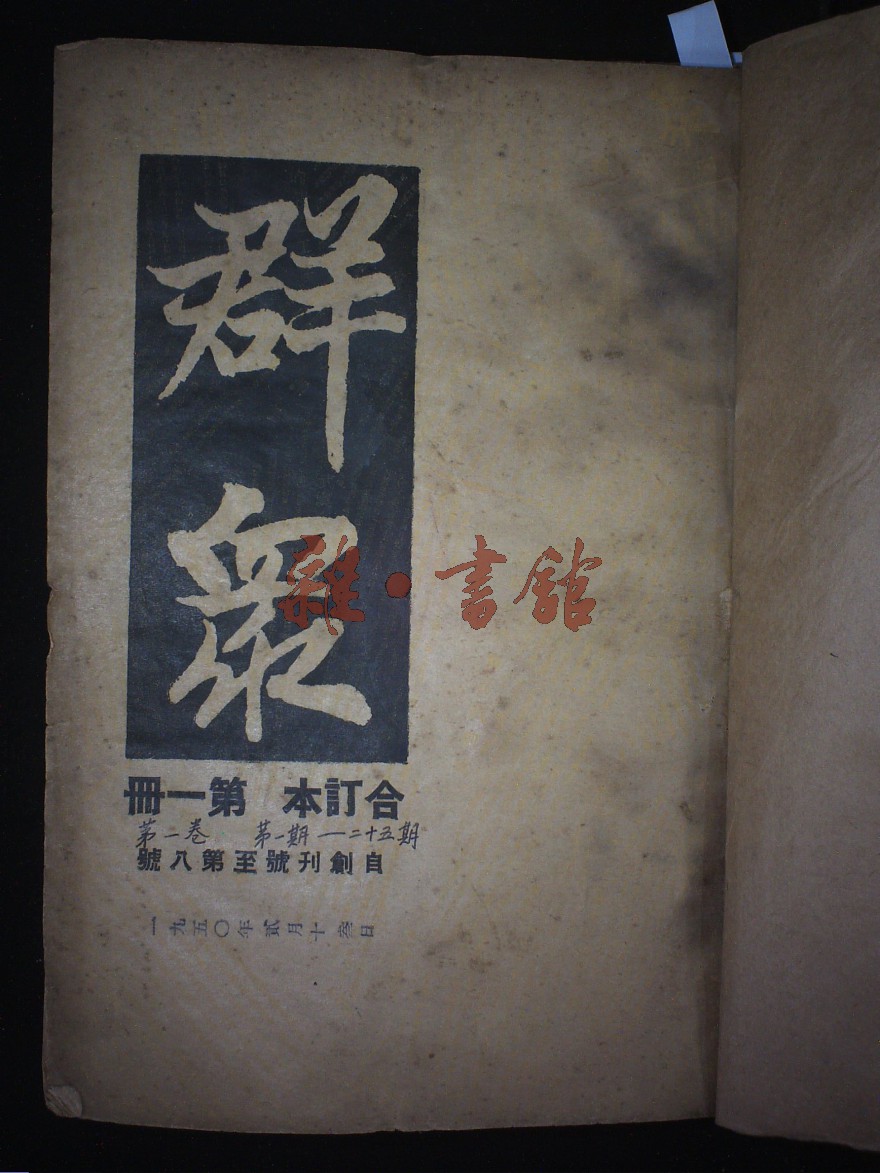 群眾
合訂本 第一冊
第二卷 第一期—二十五期
自創刊號至第八號
一九五〇年貳月十叁日
雜·書館